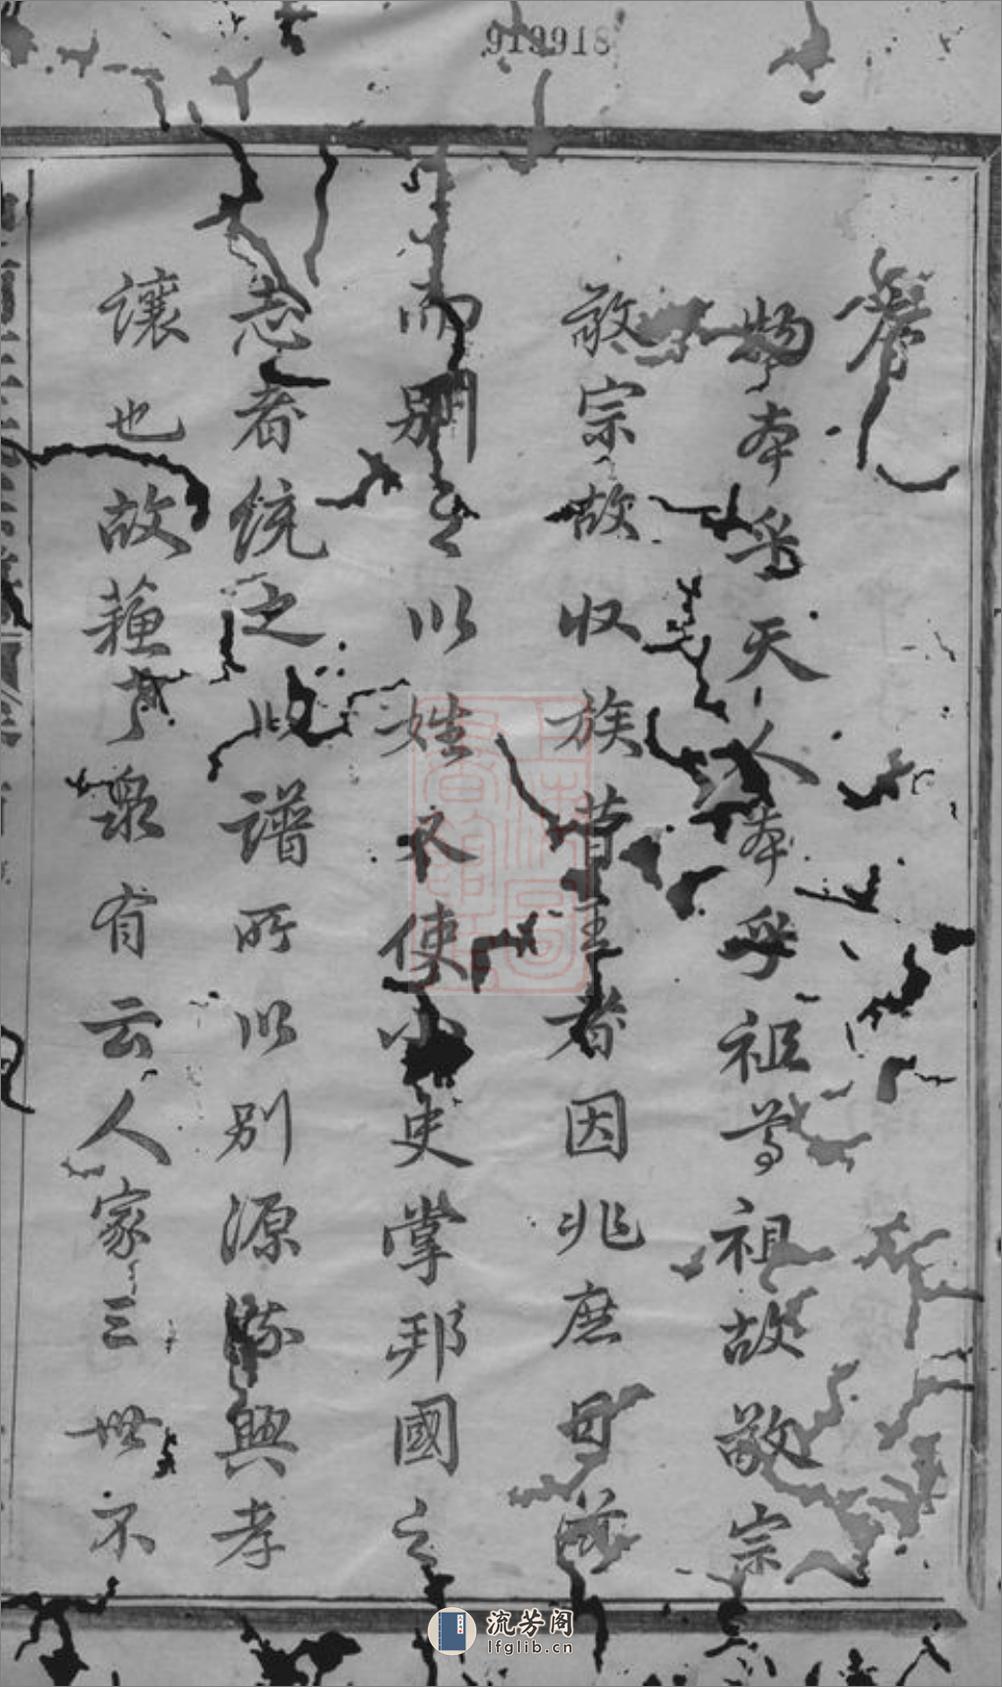 919918
序
物本乎天天人本乎祖尊祖故敬宗
敬宗故收族昔王者因兆庶
而別之以姓又使小史掌邦國之
志者統之此譜所以別源興孝
讓也故蘓泉有云人家三世不
流芳阁
lfglib.cn